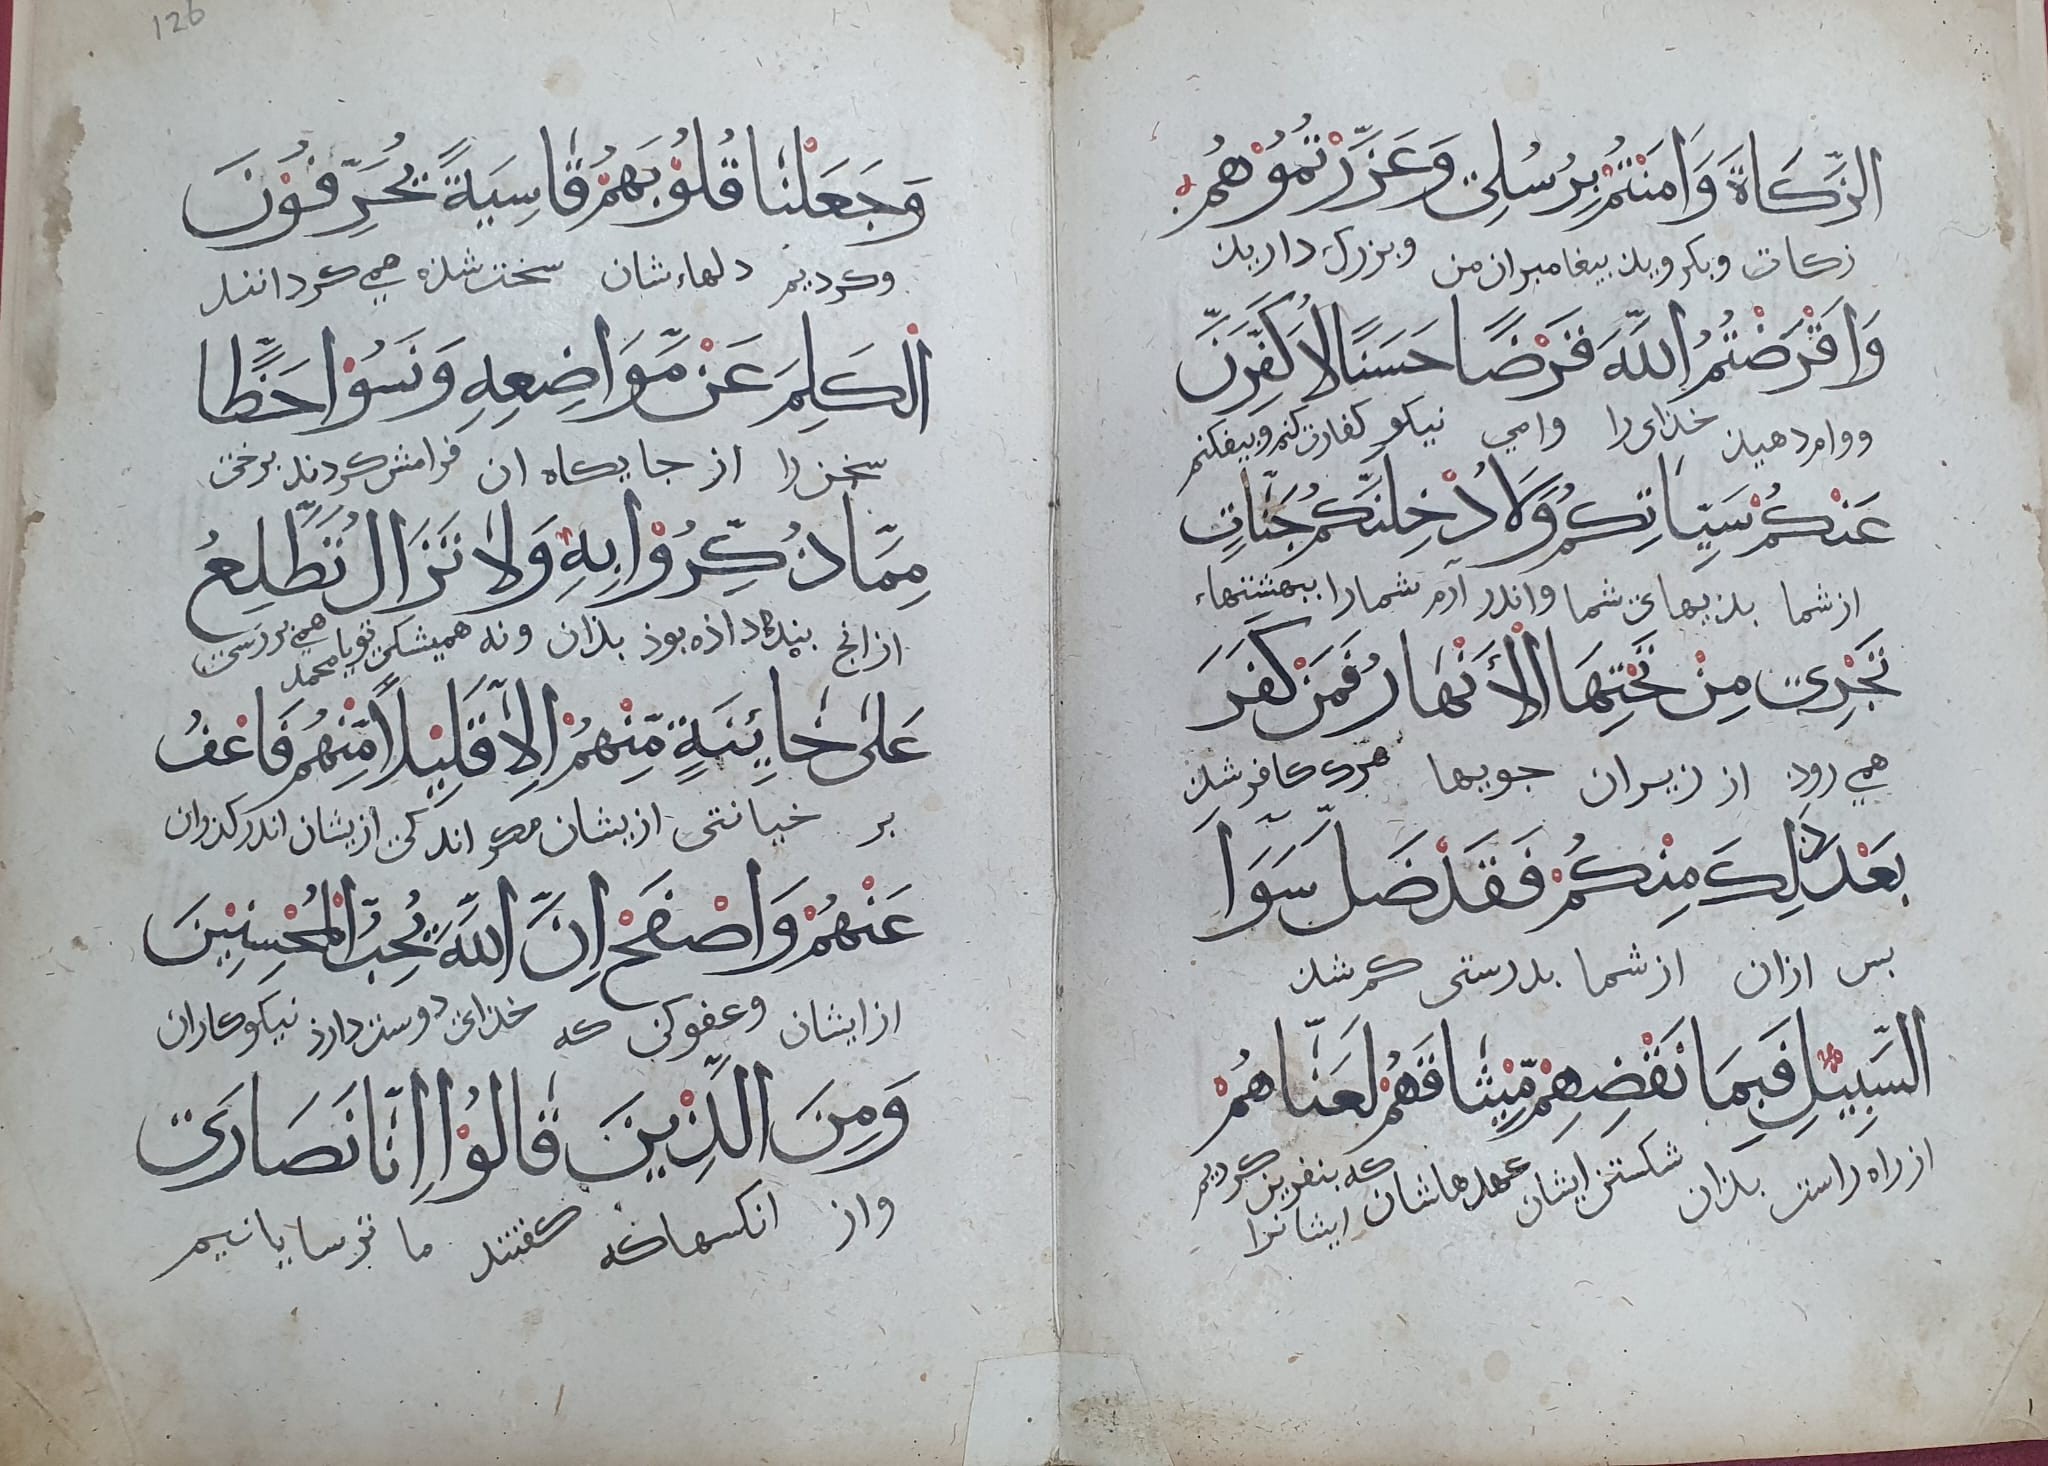 الزَّكَاةَ وَاٰمَنْتُمْ بِرُسُلِي وَعَزَّرْتُمُوْهُمْ
زكات وبكرويذ بيغامبران من وبزرك داريذ
وَاَقْرَضْتُمُ اللَّهَ قَرْضًا حَسَنًا لَاُكَفِّرَنَّ
ووام دهيذ خذاى را وامي نيكو كفارت كنم وبيفكنم
عَنْكُمْ سَيِّاٰتِكُمْ وَلَاُدْخِلَنَّكُمْ جَنَّاتٍ
از شما بذيهاى شما واندر آرم شمارا ببهشتهاء
تَجْرِي مِنْ تَحْتِهَا الْأَنْهَارُ فَمَنْ كَفَرَ
همي روذ از زيران جويها هرك كافر شذ
بَعْدَ ذٰلِكَ مِنْكُمْ فَقَدْ ضَلَّ سَوَاۤ
بس ازان از شما بدرستى كم شذ
السَّبِيْلِ فَبِمَا نَقْضِهِمْ مِّيْثَاقَهُمْ لَعَنَّاهُمْ
از راه راست بذان شكستن ايشان عهدهاشان كه بنفرين كرديم
ايشانرا
126
وَجَعَلْنَا قُلُوْبَهُمْ قَاسِيَةً يُحَرِّفُوْنَ
وكرديم دلهاء شان سخت شذه همي كردانند
الْكَلِمَ عَنْ مَّوَاضِعِهِ وَنَسُوْا حَظًّا
سخن را از جايكاه ان فرامش كردند برخى
مِمَّا ذُكِّرُوْا بِهِ وَلَا تَزَالُ تَطَّلِعُ
از انج بندداذه بوذ بذان ونه هميشكى تو يا محمد همى بررسى
عَلٰى خَائِنَةٍ مِّنْهُمْ اِلَّا قَلِيْلًا مِّنْهُمْ فَاعْفُ
بر خيانتى ازيشان مكر اندكى ازيشان اندر كذران
عَنْهُمْ وَاصْفَحْ اِنَّ اللَّهَ يُحِبُّ الْمُحْسِنِيْنَ
از ايشان وعفو كن كه خذاى دوست دارذ نيكوكاران
وَمِنَ الَّذِيْنَ قَالُوْا اِنَّا نَصَارَى
واز انكسهاكه كفتند ما ترسايانيم